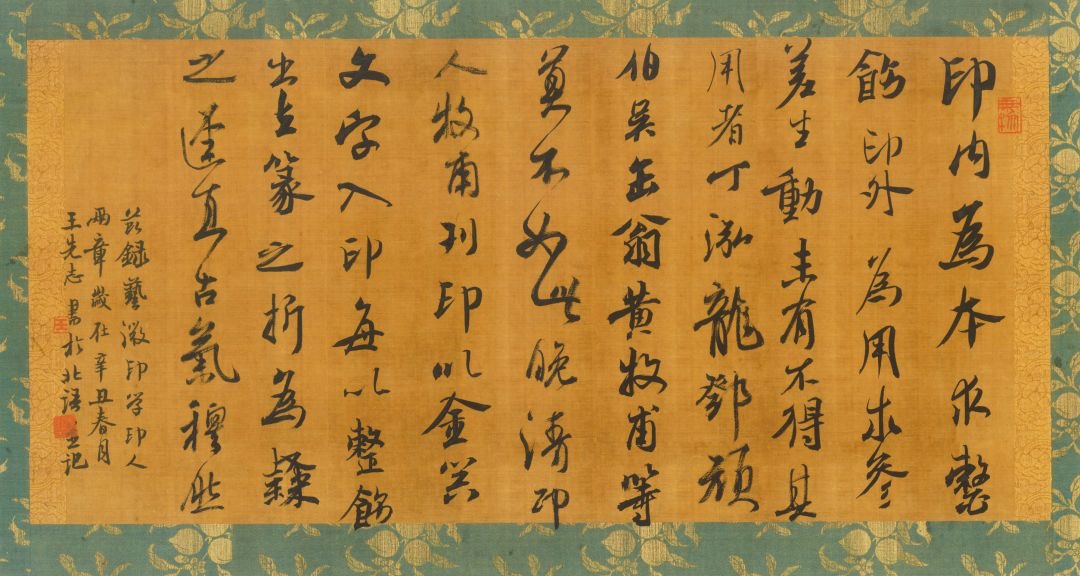 印内為本求整
飭印外為用求參
差生動未有不得其
用者丁泓龍鄧頑
伯吳缶翁黃牧甫等
莫不如此晚清印
人牧甫刊印以金器
文字入印每以整飭
出篆之折為隸
之直古氣穆然
茲錄藝微印学印人
兩章歲在辛丑春月
王先志書於北語并记